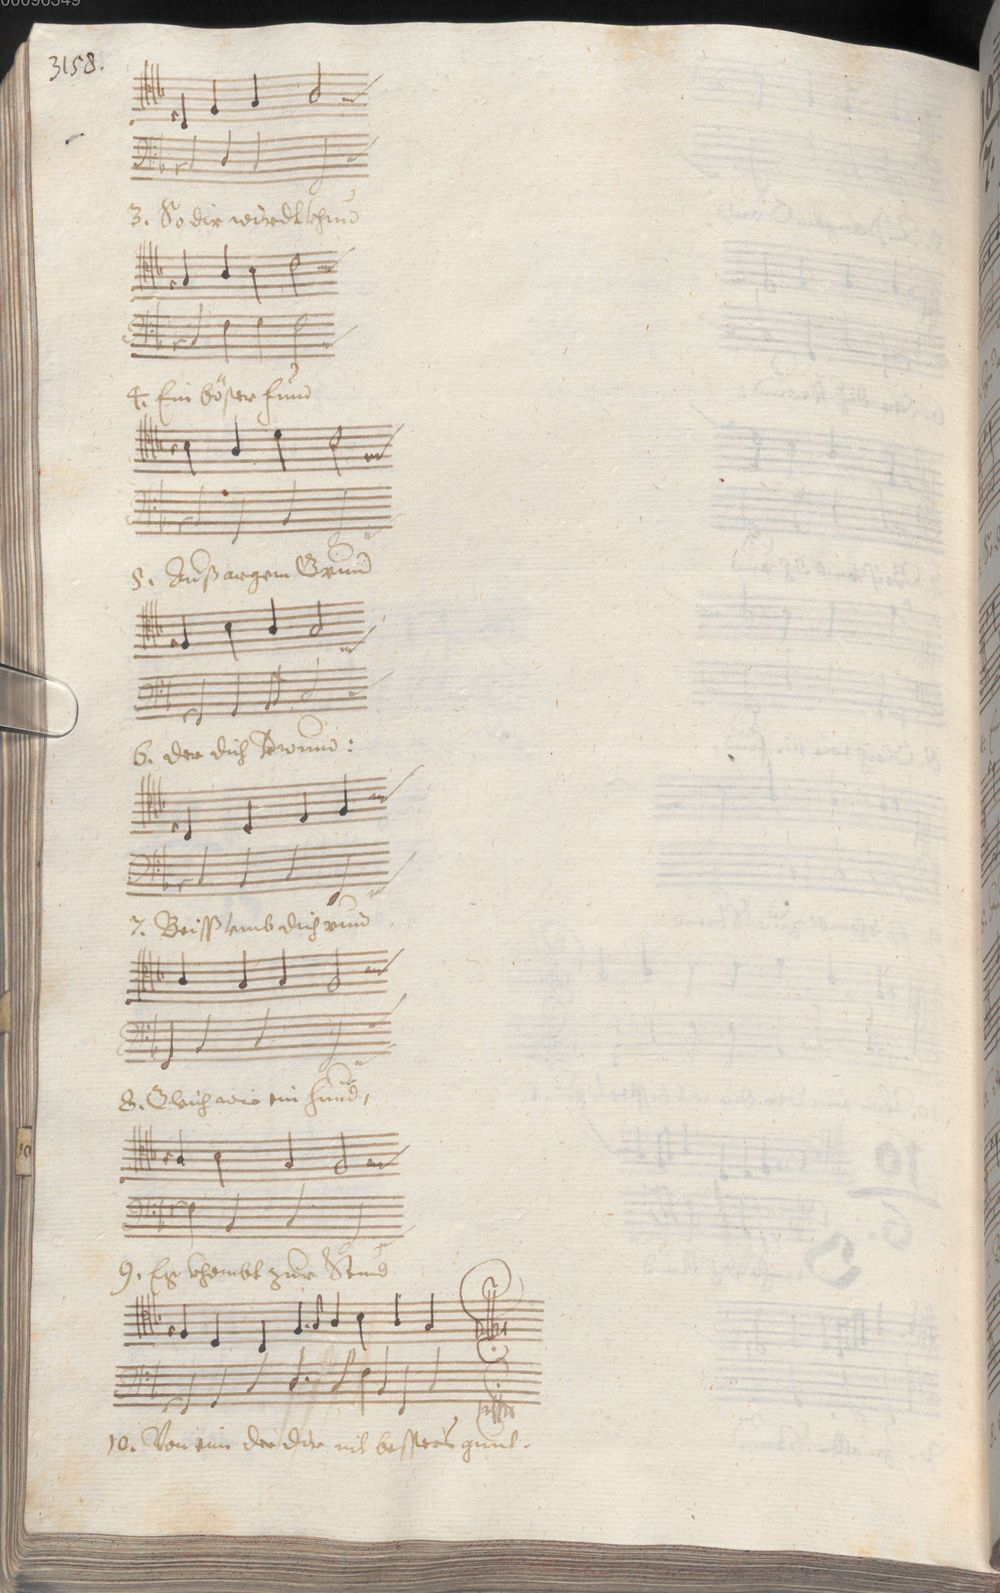 00096349
3158.
3. So dir würdt khund
4. Ein böser fund
5. Auß argem Grund
6. der dich verwund:
7. Beisst umb dich rund
8. Gleich wie ein hund,
10
9. Er khombt zur Stund
10. Von eim der dir nit bessers gunt.